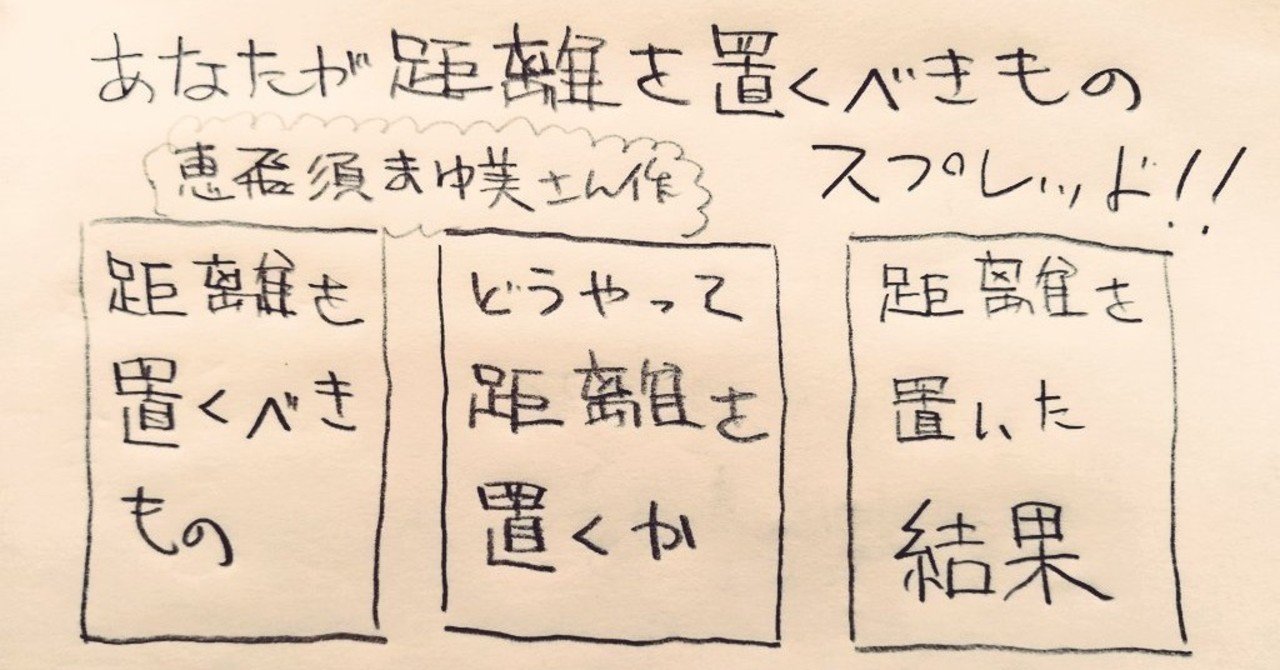 あなたが距離を置くべきもの
恵飛須まゆ美さん作
スプレッド!!
距離を
置くべき
もの
どうやって
距離を
置くか
距離を
置いた
結果